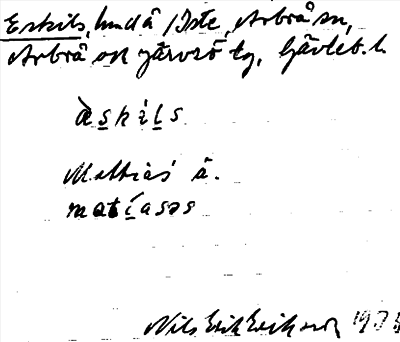 Eskils, hmdå i Iste, Arbrå sn,
Arbrå och Järvsö tg, Gävleb. l.
àskils
Mattias' å.
matíasəs
Nils Erik Eriksson